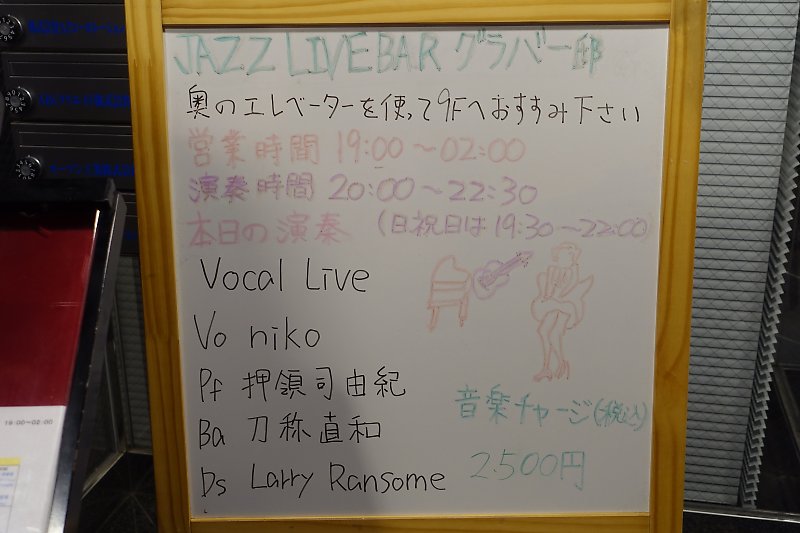 JAZZ LIVE BAR グラバー邸
奥のエレベーターを使って9Fへおすすみ下さい
営業時間 19:00～02:00
演奏時間 20:00～22:30
本日の演奏 (日祝日は19:30～22:00)
Vocal Live
Vo niko
Pf 押領司由紀
Ba 刀祢直和
Ds Larry Ransome
音楽チャージ(税込)
2.500円
19:00～02:00